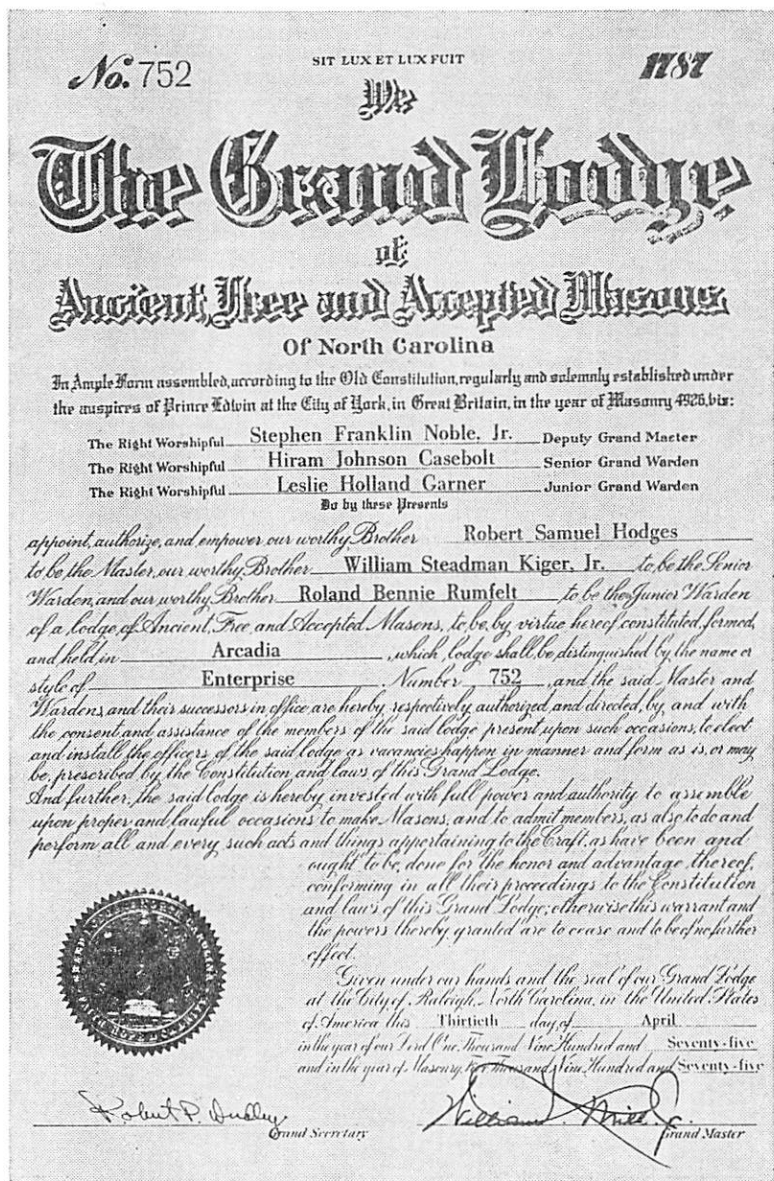 No. 752
SIT LUX ET LUX FUIT
1787
We
The Grand Lodge
of
Ancient, Free and Accepted Masons
Of North Carolina
In Ample Form assembled, according to the Old Constitution, regularly and solemnly established under
the auspices of Prince Edwin at the City of York, in Great Britain, in the year of Masonry 4926, viz:
The Right Worshipful Stephen Franklin Noble, Jr. Deputy Grand Master
The Right Worshipful Hiram Johnson Casebolt Senior Grand Warden
The Right Worshipful Leslie Holland Garner Junior Grand Warden
Do by these Presents
appoint, authorize, and empower our worthy Brother Robert Samuel Hodges
to be the Master, our worthy Brother William Steadman Kiger, Jr. to be the Senior
Warden, and our worthy Brother Roland Bennie Rumfelt to be the Junior Warden
of a lodge of Ancient, Free and Accepted Masons, to be, by virtue hereof constituted, formed,
and held in Arcadia, which lodge shall be distinguished by the name or
style of Enterprise, Number 752, and the said Master and
Wardens and their successors in office are hereby respectively authorized and directed, by and with
the consent and assistance of the members of the said lodge present upon such occasions, to elect
and install the officers of the said lodge as vacancies happen in manner and form as is, or may
be, prescribed by the Constitution and laws of this Grand Lodge.
And further, the said lodge is hereby invested with full power and authority to assemble
upon proper and lawful occasions to make Masons, and to admit members, as also to do and
perform all and every such acts and things appertaining to the Craft, as have been and
ought to be, done for the honor and advantage thereof,
conforming in all their proceedings to the Constitution
and laws of this Grand Lodge; otherwise this warrant and
the powers thereby granted are to cease and to be of no further
effect.
Given under our hands and the seal of our Grand Lodge
at the City of Raleigh, North Carolina, in the United States
of America this Thirtieth day of April
in the year of our Lord One Thousand Nine Hundred and Seventy-five
and in the year of Masonry, Five Thousand Nine Hundred and Seventy-five
Robert P. Dudley
Grand Secretary
William
Grand Master